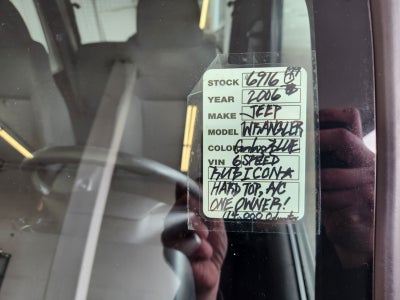 STOCK 6916
YEAR 2006
MAKE JEEP
MODEL WRANGLER
COLOR BLUE
VIN 6 SPEED
RUBICON
HARD TOP, AC
ONE OWNER!